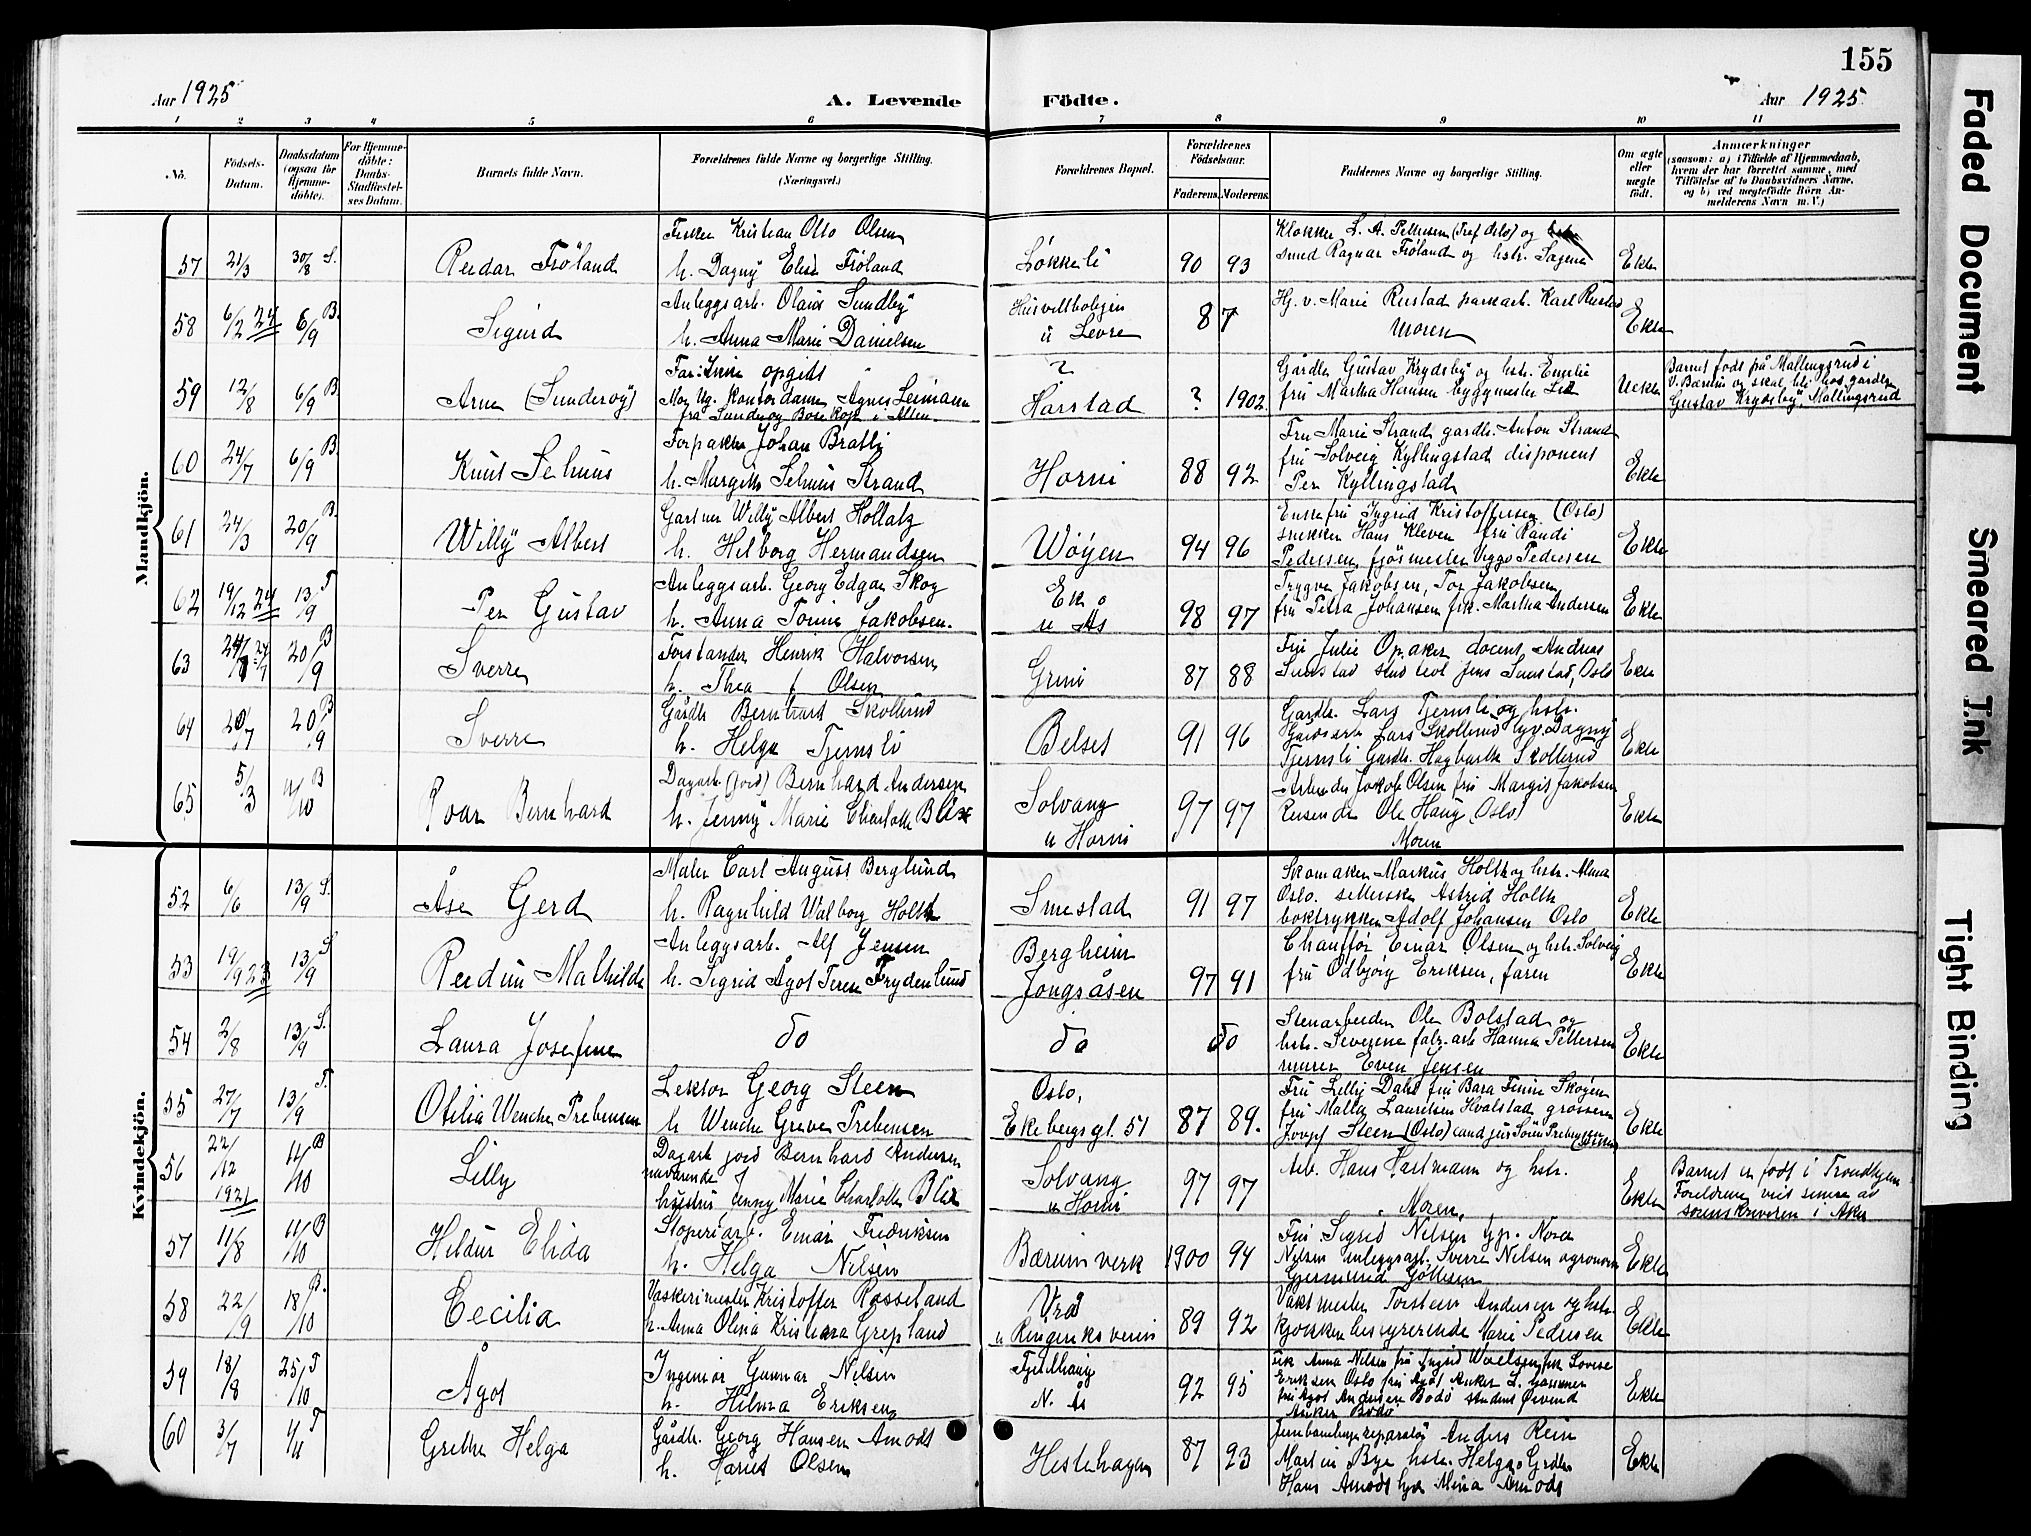 155
Aar 1925
A. Levende
Födte.
Aar 1925
1 2 3 4 5 6 7 8 9 10 11
No.
Födsels-Datum.
Daabsdatum (ogsaa for Hjemme-döbte).
For Hjemme-döbte: Daabs-Stadfæstel-ses Datum.
Barnets fulde Navn.
Forældrenes fulde Navne og borgerlige Stilling. (Næringsvei.)
Forældrenes Bopæl.
Forældrenes Födselsaar.
Faderens. Moderens.
Faddernes Navne og borgerlige Stilling.
Om ægte eller uægte født.
Anmærkninger
(saasom: a) i Tilfælde af Hjemmedaab,
hvem der har forrettet samme, med
Tilföielse af to Daabsvidners Navne,
og b) ved uægtefödte Börn An-
melderens Navn m. V.)
Mandkjön.
57 21/3 30/8 S. Reidar Fröland
Fisker Kristian Otto Olsen
h. Dagny Elise Fröland
Løkkeli 90 93
Klokker L. A. Pettersen (Oslo) og
smed Ragnar Fröland og hstr. Sagene
Ekte
58 6/2 24 6/9 B. Sigurd
Anleggsarb. Olaus Sundby
h. Anna Marie Danielsen
Husvillboligen
u Levre
87
Hj. v. Marie Rustad parkarb. Karl Rustad
Moren
Ekte
59 12/8 6/9 B. Arne (Sundervy)
Far: Inne opgitt
Mor Ug. Kontordame Agnes Leimann
fra Bosekop i Alten
? Harstad ? 1902
Gårdbr. Gustav Krydsby og hstr. Emelie
fru Martha Hansen byggmester
Uekte
Barnet født på Mallingsrud i
V. Bærum og skal bli hos gardbr.
Gustav Krydsby, Mallingsrud
60 24/7 6/9 B. Knut Selmus
Forpakter Johan Bratli
h. Margith Selmus Strand
Horni 88 92
Fru Marie Strand gardbr. Anton Strand
fru Solveig Kyllingstad disponent
Per Kyllingstad
Ekte
61 24/3 20/9 B. Willy Albert
Gartner Willy Albert Hollatz
h. Hilborg Hermandsen
Wöyen 94 96
Enkefru Ingrid Kristoffersen (Oslo)
snekker Hans Kleven fru Randi
Pedersen fjøsmester Viggo Pedersen
Ekte
62 19/12 24 13/9 T Per Gustav
Anleggsarb. Georg Edgar Skog
h. Anna Tomine Jakobsen.
Ek
u Ås
98 97
Trygve Jakobsen, Tor Jakobsen
fru Petra Johansen frk. Martha Andersen
Ekte
63 20/9 B Sverre
Forstander Henrik Halvorsen
h. Thea f Olsen
Grini 87 88
Fru Julie Opaker docent Andreas
Sunstad stud teol Jens Sunstad, Oslo
Ekte
64 20/7 20/9 B Sverre
Gårdbr Bernhard Skollerud
h. Helga Tjernsli
Belset 91 96
Gardbr. Lars Tjernsli og hstr.
Gårdsarb Lars Skollerud hj.v. Dagny
Tjernsli Gardbr. Hagbarth Skollerud
Ekte
65 5/3 11/10 B Roar Bernhard
Dagarb (jord) Bernhard Andersen
h. Jenny Marie Charlotte Blix
Solvang
u Horni
97 97
Arbeider Jakob Olsen fru Margit Jakobsen
Reisende Ole Haug (Oslo)
Moren
Ekte
Kvindekjön.
52 6/6 13/9 S. Åse Gerd
Maler Carl August Berglund
h. Ragnhild Walborg Holth
Smestad 91 97
Skomaker Markus Holth og hstr. Alma
Oslo. setterske Astrid Holth
boktrykker Adolf Johansen Oslo
Ekte
53 19/9 23 13/9 S Reidun Mathilde
Anleggsarb. Alf Jensen
h. Sigrid Ågot Terese Frydenlund
Bergheim
Jongsåsen
97 91
Chaufför Einar Olsen og hstr. Solveig
fru Odbjörg Eriksen, faren
Ekte
54 2/8 13/9 S. Laura Josefine
do
do
do
Stenarbeider Ole Bolstad og
hstr. Severine fabr. arb Hanna Pettersen
murer Even Jensen
Ekte
55 27/7 13/9 T. Otilia Wenche Prebensen
Lektor Georg Steen
h Wenche Greve Prebensen
Oslo,
Ekebergsgt. 51
87 89.
Fru Lelly Dahl fru Bara Finne Skøyen
fru Malla Lauritsen Hvalstad, grosserer
Steen (Oslo) cand jur Sören Prebensen
Ekte
56 22/12 1921 11/10 B Lilly
Dagarb jord Bernhard Andersen
nuværende
hustru Jenny Marie Charlotte Blix
Solvang
u Horni
97 97
Arb. Hans Hartmann og hstr.
Moren,
Ekte
Barnet er født i Trondhjem
Foreldrene viet senere av
sorenskriveren i Aker
57 11/8 11/10 B Hildur Elida
Støperiarb. Einar Fredriksen
h. Helga Nilsen
Bærum verk 1900 94
Fru Sigrid Nilsen hjp. Nora
Nilsen anleggsarb. Sverre Nilsen agronom
Gjermund
Ekte
58 22/9 18/10 B. Cecilia
Vaskerimester Kristoffer Rosseland
h. Anna Olena Kristiana Grepland
Vrå
u Ringeriksveien
89 92
Vaktmester Torstein Andersen og hstr
kjøkkenbestyrerinde Marie Pedersen
Ekte
59 18/8 25/10 T Ågot
Ingeniør Gunnar Nilsen
h. Hilma Eriksen
Fjellhaug
N. Ås
92 95
frk Anna Nilsen fru Ingrid Waelsen frk Lovise
Eriksen Oslo fru Ågot Anker L.
fru Ågot Andersen Bodö student Øivind
Anker Bodö
Ekte
60 3/7 1/11 T Grethe Helga
Gårdbr. Georg Hansen Amodt
h. Harriet Olsen
Hestehagen 87 93
Jernbanelinjereparatør Anders Rein
Martin Bye hstr. Helga, Grdbr
Hans Amodt hj.v. Mina Amodt
Ekte
Faded Document
Smeared Ink
Tight Binding